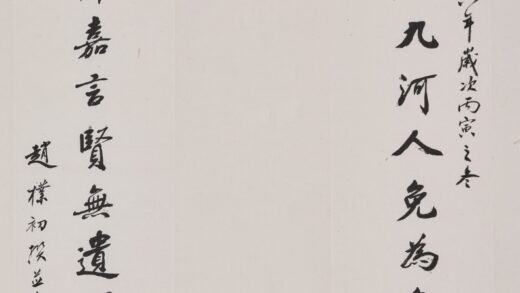 年歲次丙寅之冬
九河人免為
嘉言賢無遺
趙樸初撰並